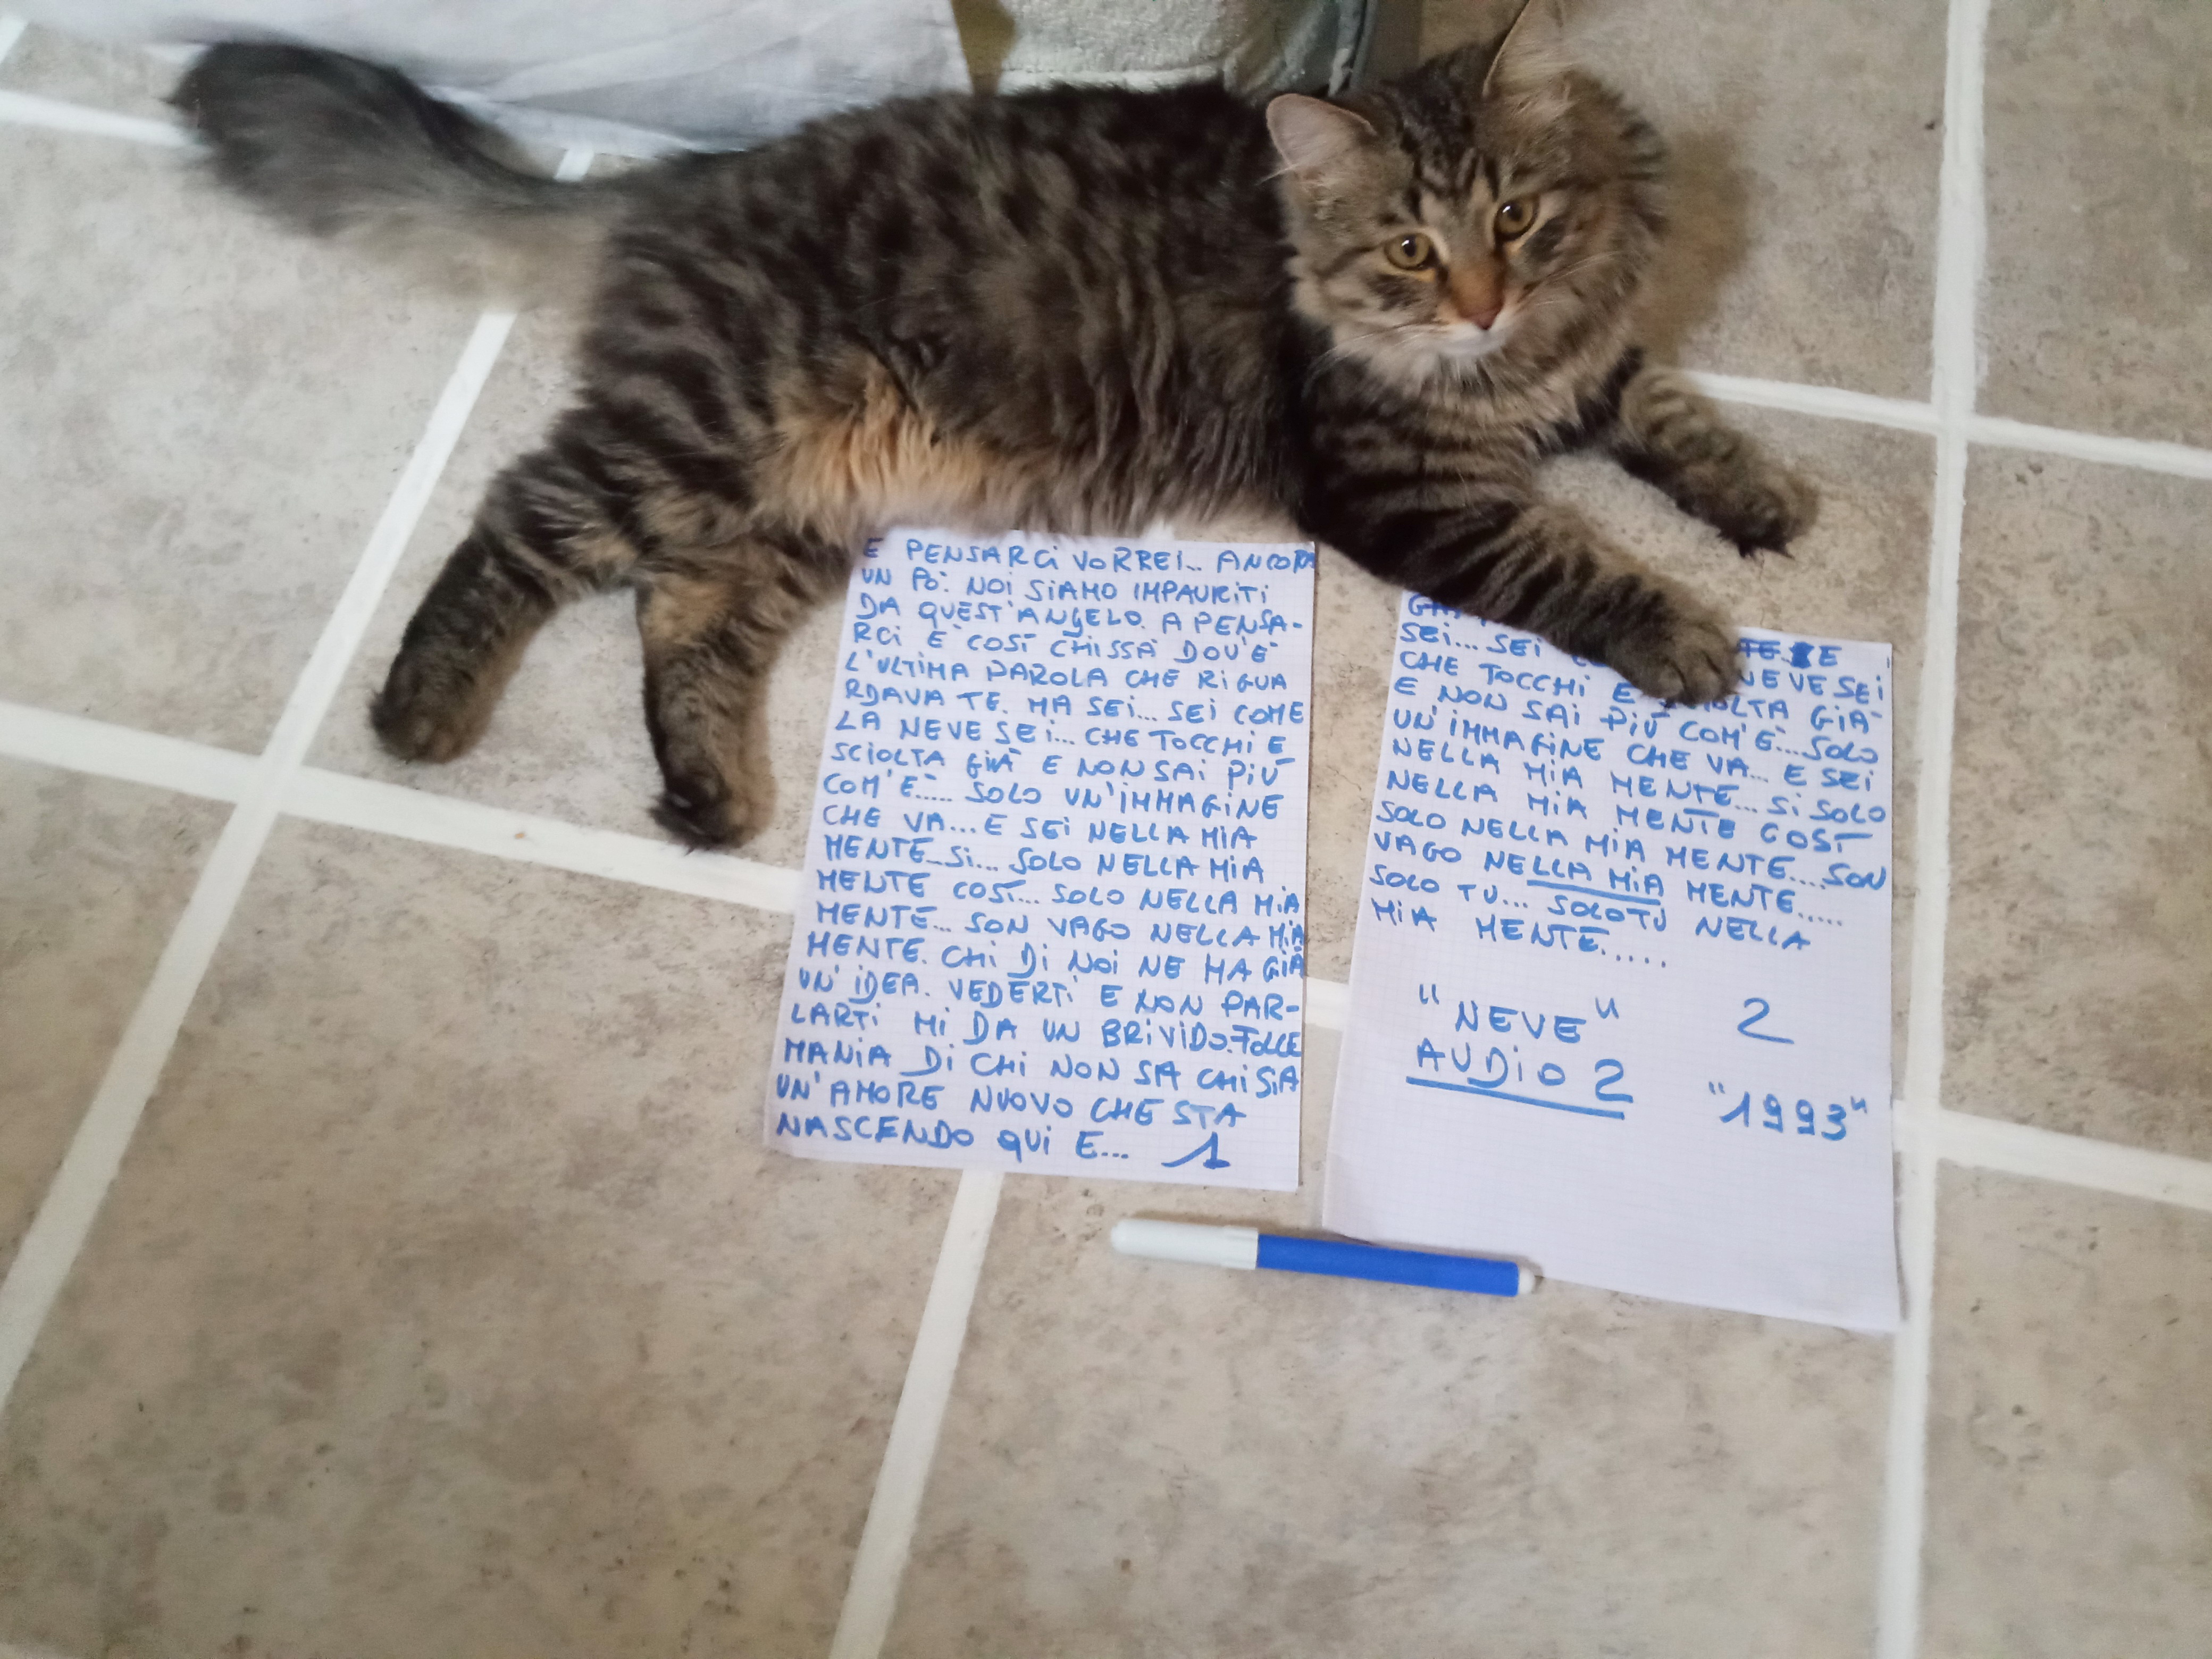 E PENSARCI VORREI... ANCORA
UN PO'. NOI SIAMO IMPAURITI
DA QUEST'ANGELO. A PENSA-
RCI E' COSÌ CHISSÀ DOV'E'
L'ULTIMA PAROLA CHE RIGUA
RDAVA TE. MA SEI... SEI COME
LA NEVE SEI... CHE TOCCHI E
SCIOLTA GIÀ E NON SAI PIÙ
COM'E'..... SOLO UN'IMMAGINE
CHE VA... E SEI NELLA MIA
MENTE... SI... SOLO NELLA MIA
MENTE COSÌ... SOLO NELLA MIA
MENTE... SON VAGO NELLA MIA
MENTE. CHI DI NOI NE HA GIÀ
UN'IDEA. VEDERTI E NON PAR-
LARTI MI DA UN BRIVIDO. FOLLE
MANIA DI CHI NON SA CHI SIA
UN'AMORE NUOVO CHE STA
NASCENDO QUI E... 1
E
SEI... SEI NEVE SEI
CHE TOCCHI E SCIOLTA GIÀ
E NON SAI PIÙ COM'E'.... SOLO
UN'IMMAGINE CHE VA... E SEI
NELLA MIA MENTE... SI SOLO
NELLA MIA MENTE COSÌ
SOLO NELLA MIA MENTE.... SON
VAGO NELLA MIA MENTE.....
SOLO TU... SOLO TU NELLA
MIA MENTE.....
"NEVE" 2
AUDIO 2
"1993"